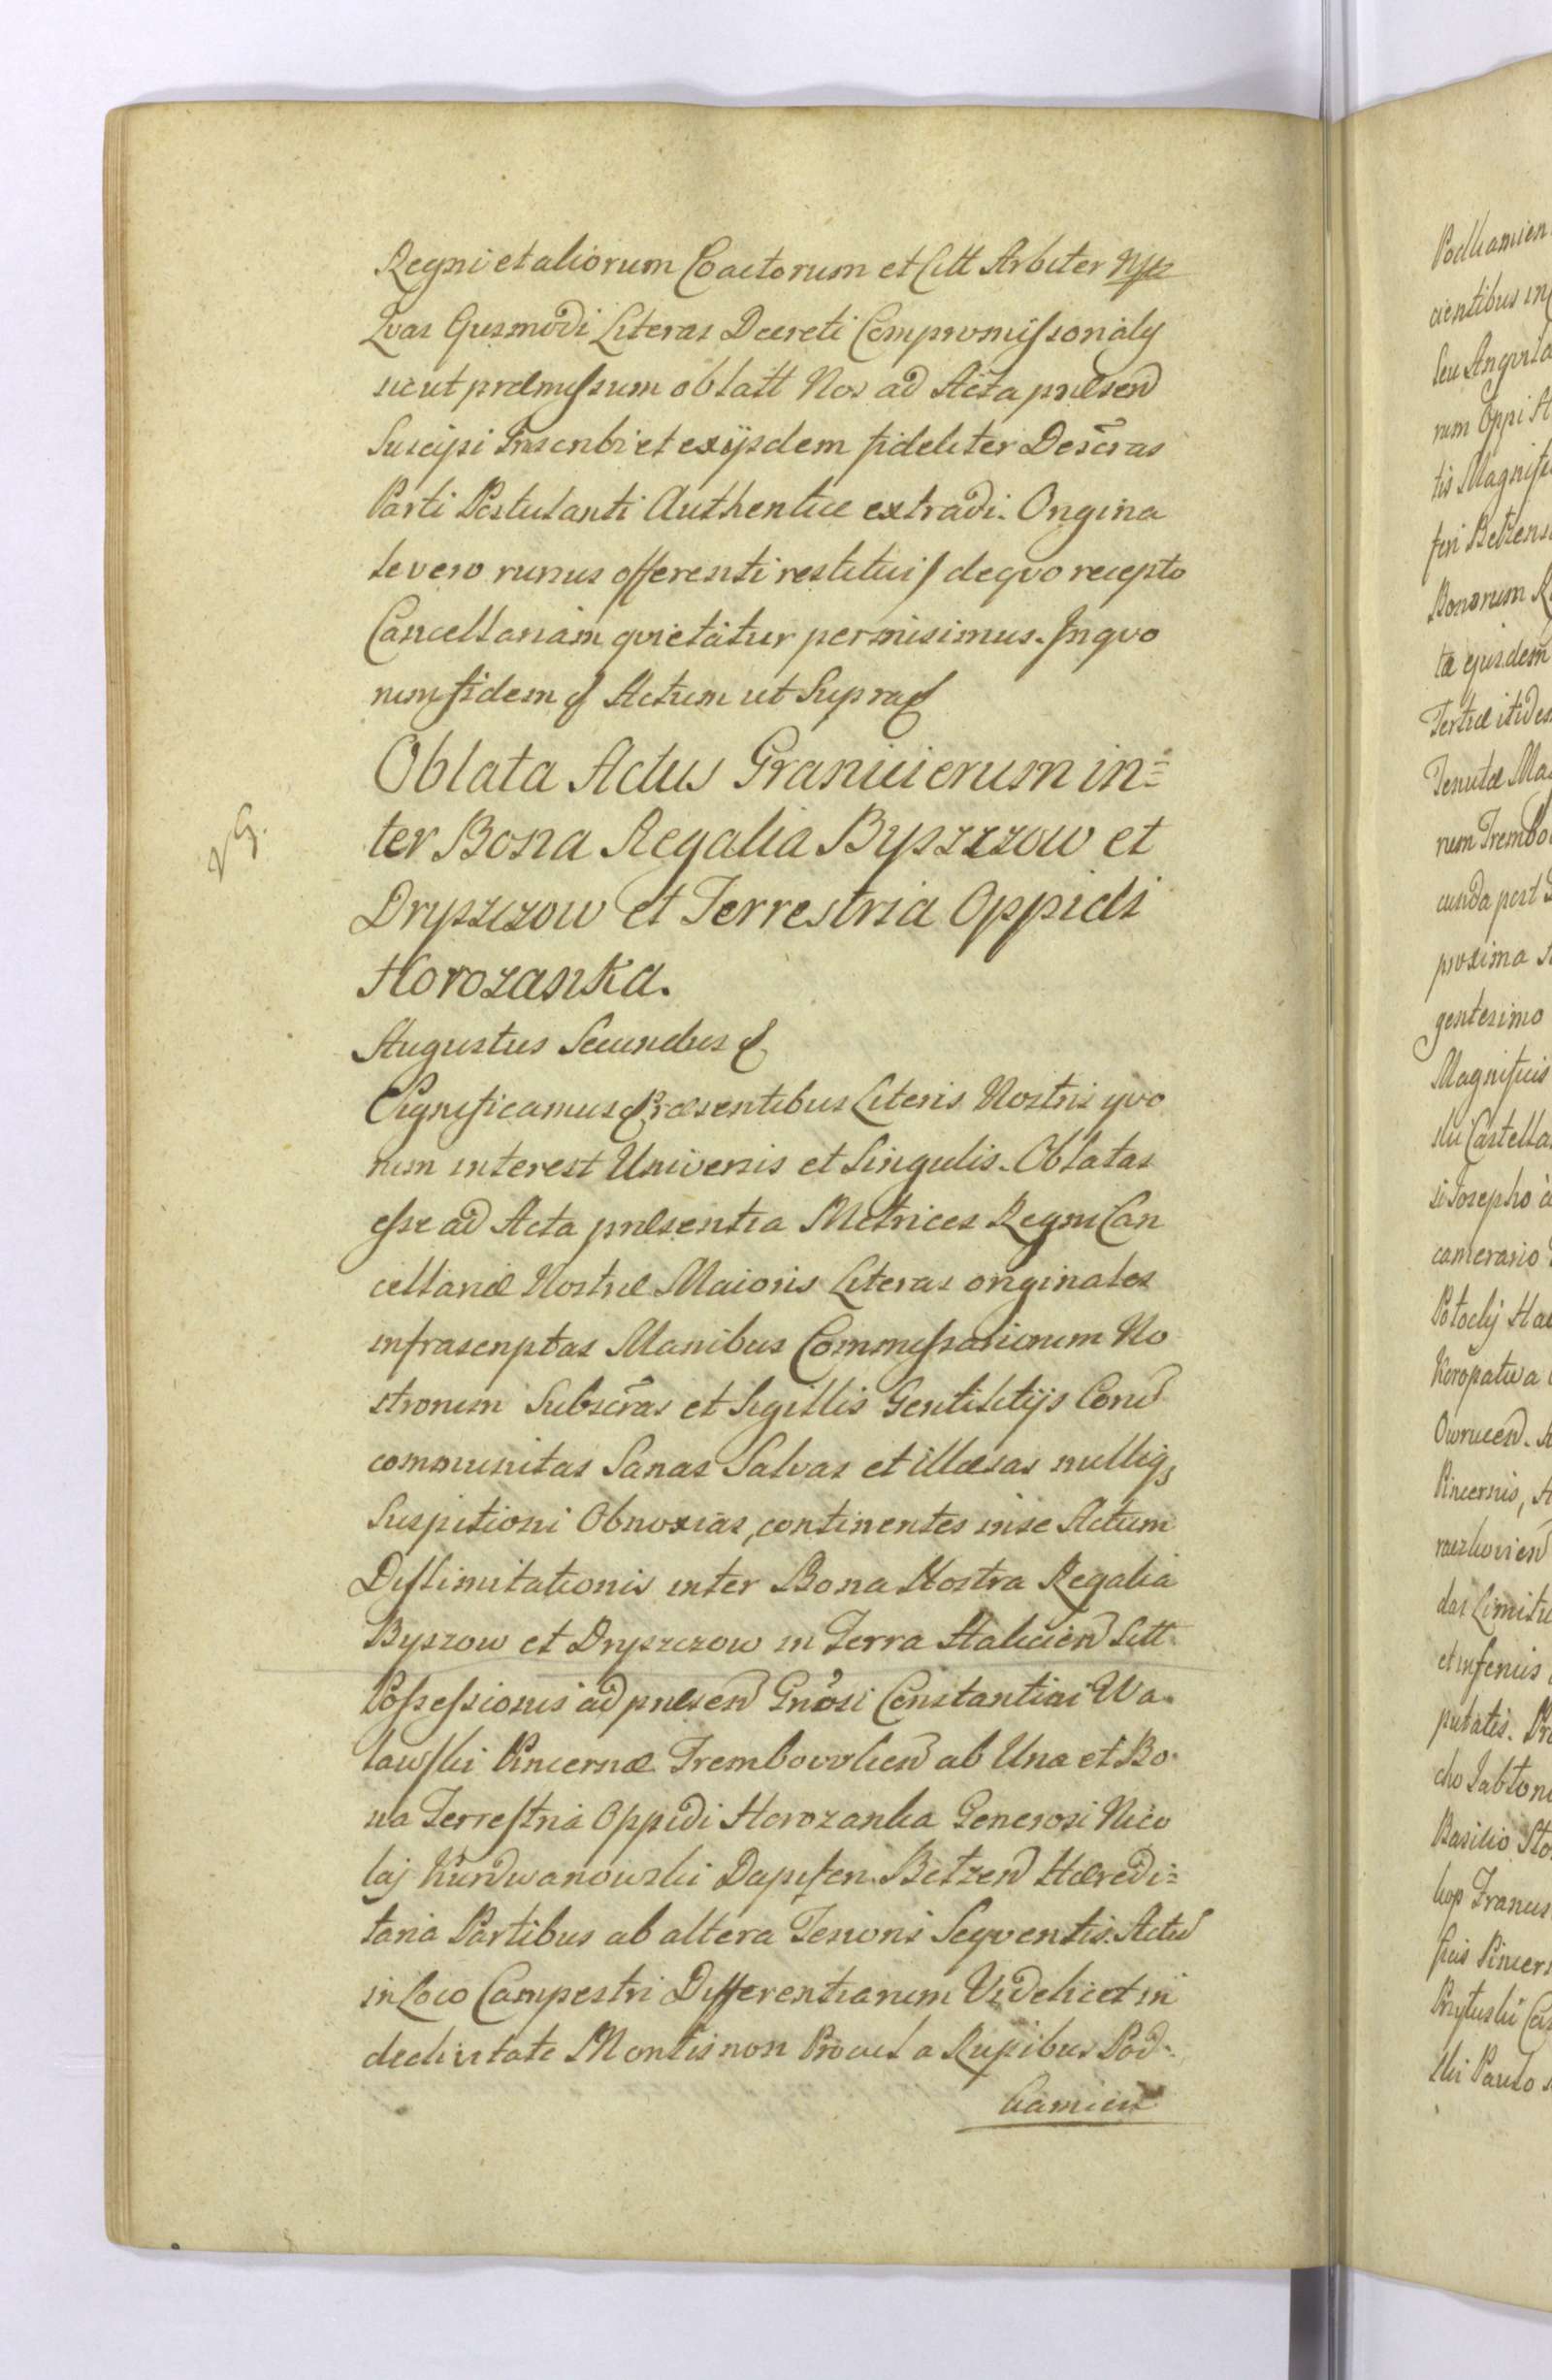 Regni et aliorum Coactorum et Citt Arbiter mpr
Qvas Eiusmodi Literas Decreti Compromissorialij
sicut præmissum oblatt Nos ad Acta præsend
Suscipi Inscribi et ex ijsdem fideliter Descras
Parti Postulanti Authentice extradi. Origina
le vero rursus offerenti restitui / de qvo recepto
Cancellariam qvietatur permisimus. In qvo
rum fidem & Actum ut Supra &
Oblata Actus Granicierum in=
ter Bona Regalia Byszzzow et
Dryszczow et Terrestria Oppidi
Horozanka.
VG.
Augustus Secundus &
Significamus & Præsentibus Literis Nostris qvo
rum interest Universis et Singulis. Oblatas
esse ad Acta præsentia Metrices Regni Can
cellariæ Nostræ Maioris Literas originales
infrascriptas Manibus Commissariorum No
strorum Subscras et Sigillis Gentilitijs Eorud
communitas Sanas Salvas et illæsas nulliq;
Suspitioni Obnoxias, continentes in se Actum
Dislimitationis inter Bona Nostra Regalia
Byszow et Dryszczow in Terra Halicien Sitt
Possessionis ad præsend Gnosi Constantini Wa=
lawski Pincernæ Trembowlien ab Una et Bo=
na Terrestria Oppidi Horozanka Generosi Nico
laj Kurdwanowski Dapifen. Betzen Hæredi=
taria Partibus ab altera Tenoris Seqventis. Actud
in Loco Campestri Differentiarum Videlicet in
declivitate Montis non Procul a Rupibus Pod=
kamien
Podkamien
cientibus in
seu Angula
rum Oppi H
tis Magnifi
feri Betzens
Bonorum R
ta ejusdem
Tertiæ itidem
Tenutæ Ma
rum Trembo
cunda post
proxima
gentesimo
Magnificis
ski Castella
si Josepho a
camerario
Potockij Hal
Koropatwa
Owruced.
Pincernis,
raezkovien
das Limitu
et inferius
putatis. Pr
cho Jabłon
Basilio Sto
kop Francis
scis Pincer
Prytuski Cas
ski Paulo